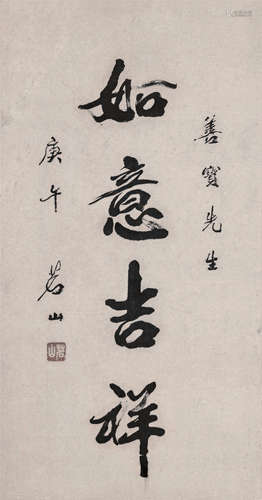 善寶先生
如意吉祥
庚午
若山